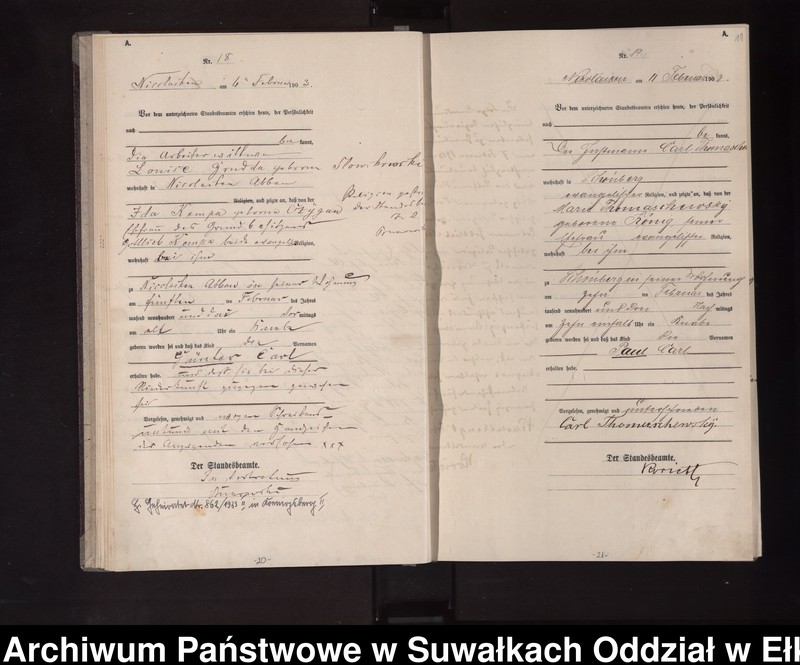 A.
Nr. 18
Nicolaiken am 6ten Februar 1903.
Vor dem unterzeichneten Standesbeamten erschien heute, der Persönlichkeit
nach
bekannt,
die Arbeiterwittwe
Louise Grudda geborene
wohnhaft in Nicolaiken Abbau
Religion, und zeigte an, daß von der
Ida Kempa geborene Czygan
Ehefrau des Grundbesitzers
Gottlieb Kempa beide evangelischer Religion,
wohnhaft bei ihm
zu Nicolaiken Abbau in seiner Wohnung
am fünften ten Februar des Jahres
tausend neunhundert und drei Vormittags
um elf Uhr ein Knabe
geboren worden sei und daß das Kind die Vornamen
Günter Carl
erhalten habe. und daß sie bei dieser
Niederkunft zugegen gewesen
sei
Vorgelesen, genehmigt und wegen Schreibens-
mit den Handzeichen
xxx
Der Standesbeamte.
In Vertretung
Geheiratet Nr. 862/1943 in Koenigsberg
-20-
A.
Nr.
Nikolaiken am 11 Februar 1903.
Vor dem unterzeichneten Standesbeamten erschien heute, der Persönlichkeit
nach
bekannt,
Der Instmann Carl
wohnhaft in Schönberg
evangelischer Religion, und zeigte an, daß von der
Marie Thomaschewsky
geborene König seiner
Ehefrau evangelischer Religion,
wohnhaft bei ihm
zu Schönberg in seiner Wohnung
am zehn ten Februar des Jahres
tausend neunhundert und drei Nachmittags
um zehn einhalb Uhr ein Knabe
geboren worden sei und daß das Kind die Vornamen
Paul Carl
erhalten habe.
Vorgelesen, genehmigt und unterschrieben
Carl Thomaschewsky.
Der Standesbeamte.
-21-
Archiwum Państwowe w Suwałkach Oddział w Ełk